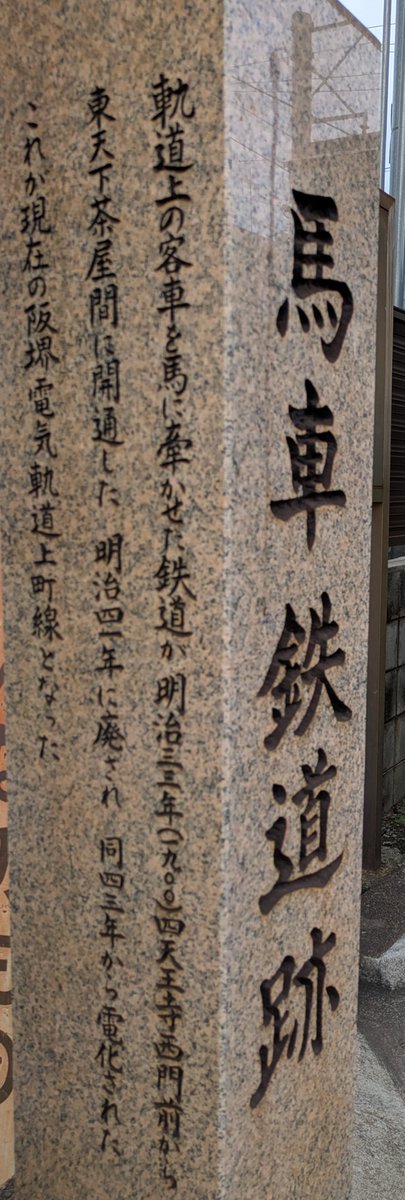 馬車鉄道跡
軌道上の客車を馬に牽かせた鉄道が 明治三三年(一九〇〇)四天王寺西門前から
東天下茶屋間に開通した 明治四一年に廃され 同四三年から電化された
これが現在の阪堺電気軌道上町線となった